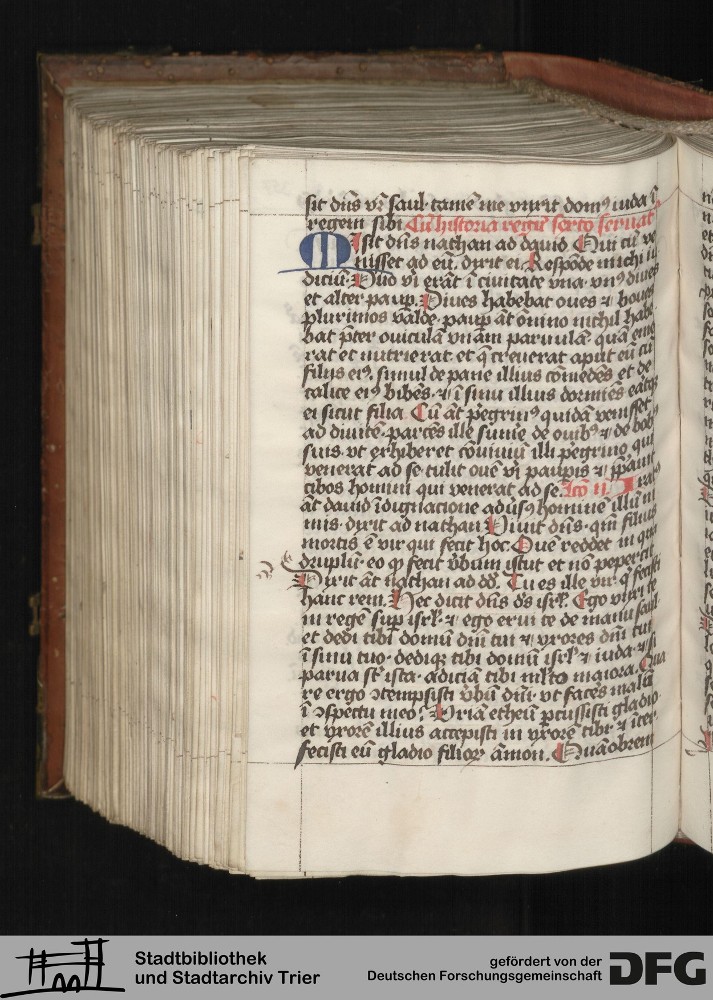 sit dn̄s vr̄ saul· tamē me vnxit domꝰ iuda ī
regem sibi Cū historia regū scd̄o seruat᷑
Misit dn̄s nathan ad dauid Qui cū ve
nisset ad eū· dixit ei Respōde michi iu
diciū· Duo vi erāt ī ciuitate vna· vnꝰ diues
et alter paup̄· Diues habebat oues ⁊ boues
plurimos valde· paup̄ āt ōnino nichil habe
bat p̄ter ouiculā vnam paruulā· quā eme
rat et nutrierat· et q̄ creuerat aput eū cū
filijs eiꝰ· simul de pane illius comedēs et de
calice eiꝰ bibēs· ⁊ ī sinu illius dormiēs eratqꝫ
ei sicut filia Cū āt p̄egrinꝰ quidā venisset
ad diuitē· parcēs ille sumē de ouibꝰ ⁊ de bobꝰ
suis· vt exhiberet cōuiuiū illi p̄egrino qui
venerat ad se· tulit ouē vi paup̄is ⁊ p̄pauit
cibos homini qui venerat ad se· Lcō ii· Irat
āt dauid īdignacione adūsꝰ hominē illū ni
mis· dixit ad nathan Viuit dn̄s· qm̄ filius
mortis ē vir qui fecit hoc· Ouē reddet in qua
druplū· eo qꝫ fecit v̄bum istut et nō pepercit
Dixit āt nathan ad dd̄· Tu es ille vir q̄ fecisti
hanc rem· Hec dicit dn̄s ds̄ isrl̄· Ego vnxi te
in regē sup̄ isrl̄· ⁊ ego erui te de manu saul·
et dedi tibi domū dn̄i tui ⁊ vxores dn̄i tui
ī sinu tuo· dediqꝫ tibi domū isrl̄ ⁊ iuda· ⁊ si
parua st̄ ista· adiciā tibi ml̄to maiora· Qua
re ergo ↄtempsisti v̄bū dn̄i· vt facēs malū
ī ↄspectu meo? Vriā etheū p̄cussisti gladio
et vxorē illius accepisti in vxorē tibi· ⁊ īter
fecisti eū gladio filioꝝ amon· Quāobrem
Stadtbibliothek
und Stadtarchiv Trier
gefördert von der
Deutschen Forschungsgemeinschaft
DFG